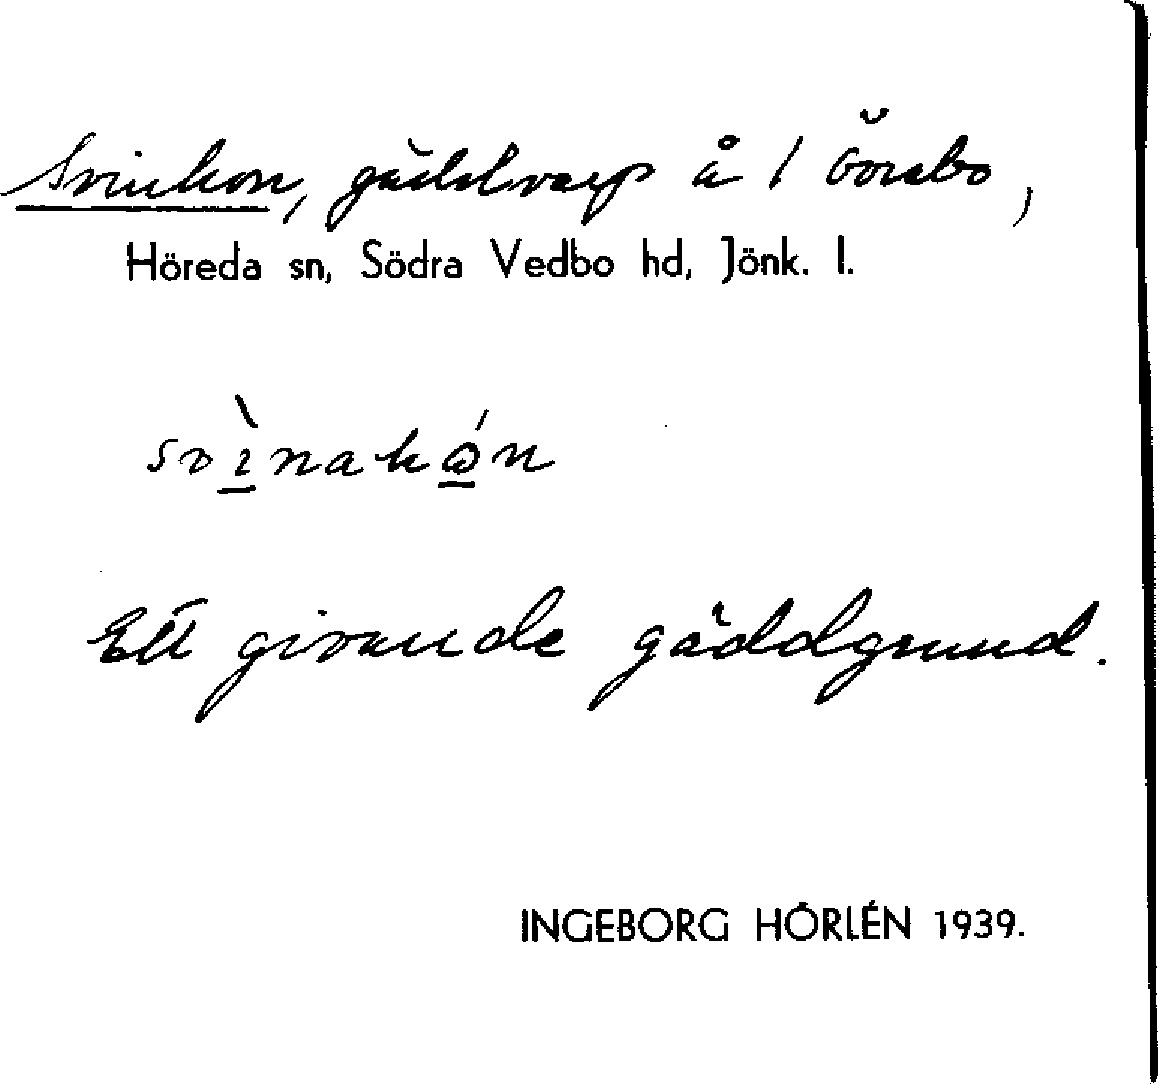 Svinkon, gäddvarp å 1 Börebo,
Höreda sn, Södra Vedbo hd, Jönk. l.
svìnakón
Ett givande gäddgrund.
INGEBORG HÖRLÉN 1939.